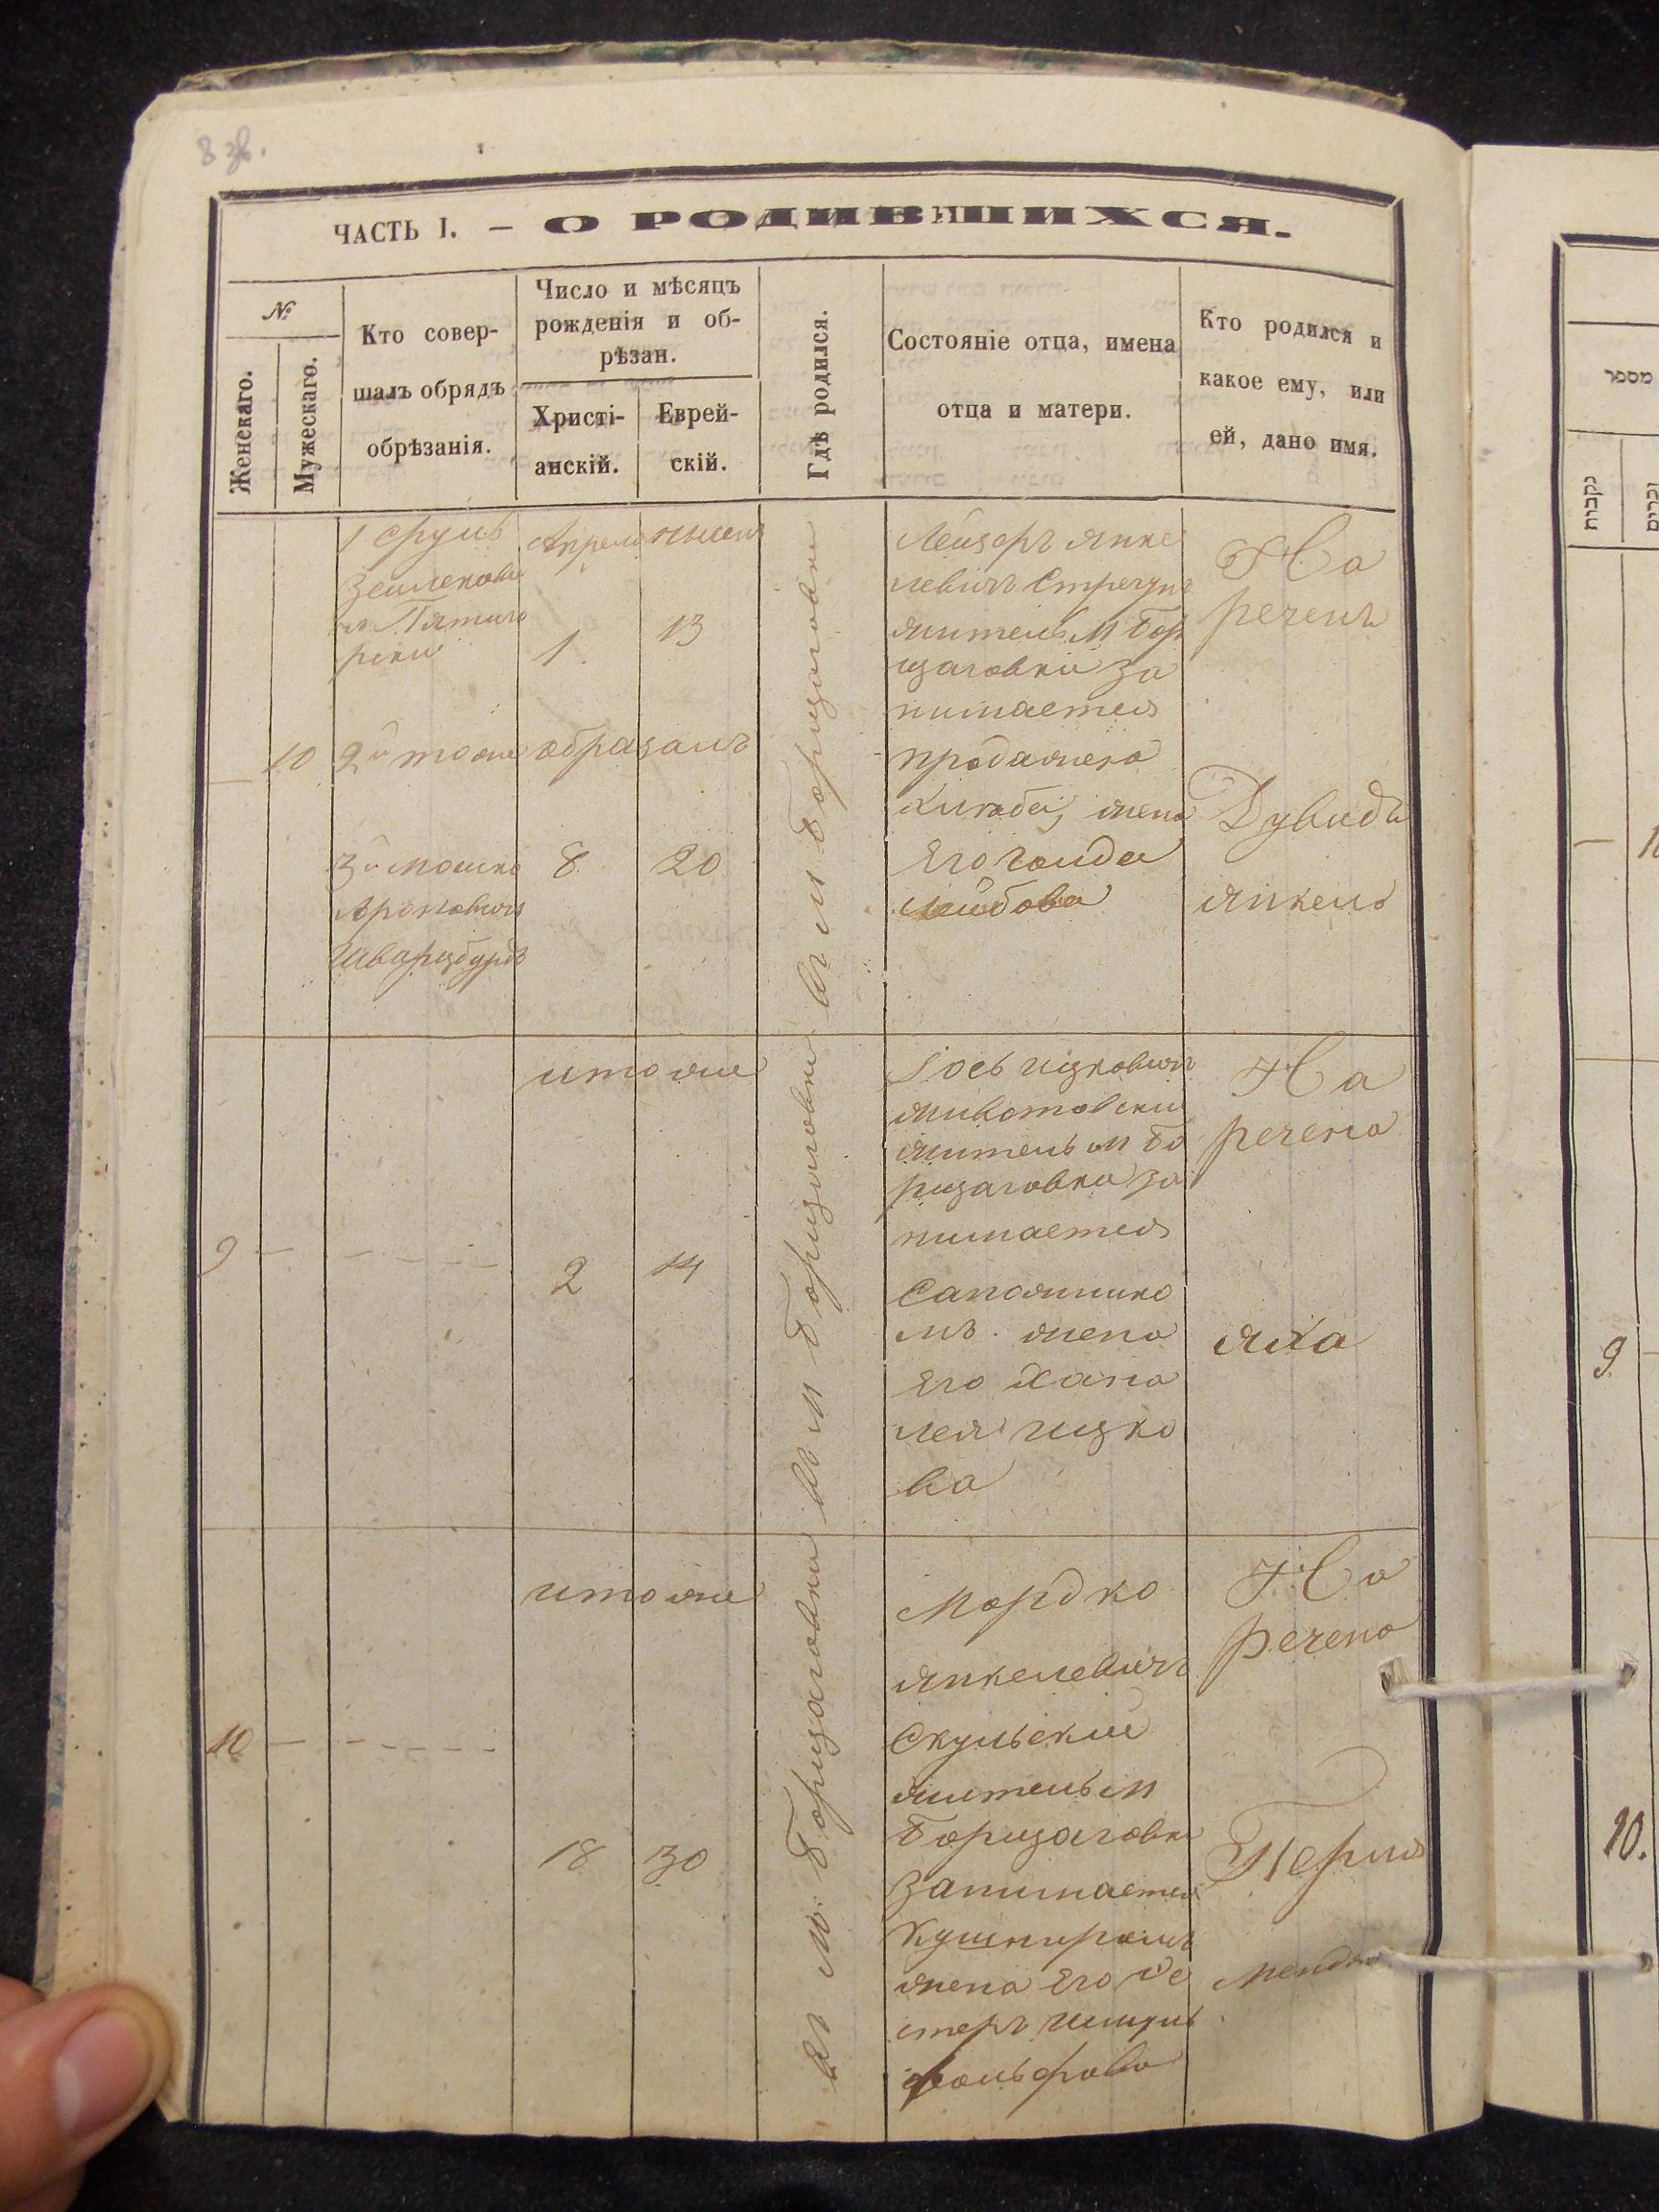 8 зв.
ЧАСТЬ I. — О РОДИВШИХСЯ.
№
Женскаго.
Мужескаго.
Кто совер-
шалъ обрядъ
обрѣзанія.
Число и мѣсяцъ
рожденія и об-
рѣзан.
Христі-
анскій.
Еврей-
скій.
Гдѣ родился.
Состояніе отца, имена
отца и матери.
Кто родился и
какое ему, или
ей, дано имя.
10
1 Сруль
рски
2й тоже
3й Мошко
Ароновичъ
Шварцбурдъ
Апреля
1
13
обрязанъ
8
20
въ м Борщаговки
Лейзеръ Янке
левичъ
житель М Бор
щаговки за
нимается
продажею
хлѣба, жена
Его Голда
Лейбова
На
реченъ
Дувидъ
Янкель
9 —
— — — —
итоже
2
14
въ м Борщаговки
Іось Ицковичъ
Животовски
житель м Бо
рщаговки за
нимается
Сапожнико
мъ. жена
Его Хана
Лея Ицко
ва
На
речена
Яха
10 —
— — — — —
итоже
18
30
въ м. Борщаговки
Мордко
Янкелевичъ
Скульский
житель м
Борщаговки
Занимается
Кушниромъ
жена Его Ес
теръ
На
речена
Перля
מספר
נקבות
זכרים
— 1
9
10.